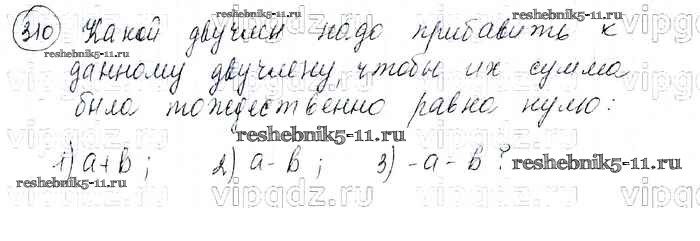 310 Какой двучлен надо прибавить к
данному двучлену, чтобы их сумма
была тождественно равна нулю:
1) a+b; 2) a-b; 3) -a-b?
reshebnik5-11.ru
reshebnik5-11.ru
reshebnik5-11.ru
reshebnik5-11.ru
reshebnik5-11.ru
vipgdz.ru